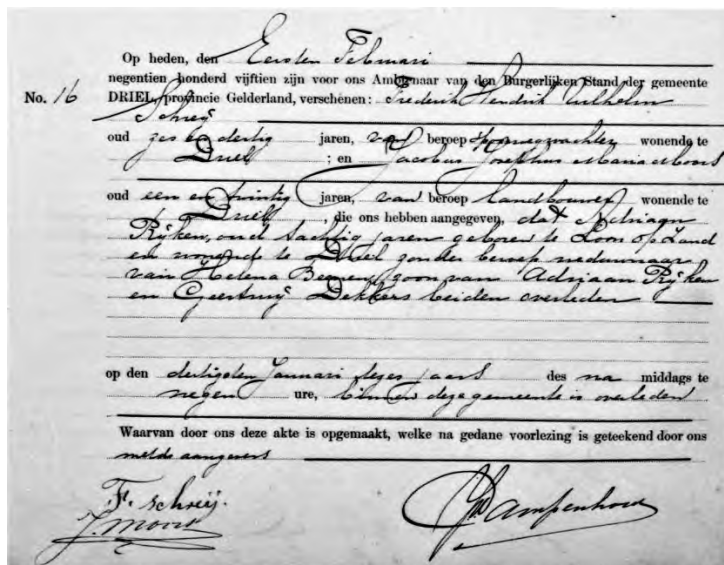 Op heden, den Eersten Februari
negentien honderd vijftien zijn voor ons Ambtenaar van den Burgerlijken Stand der gemeente
No. 16 DRIEL, provincie Gelderland, verschenen: Frederik Hendrik Wilhelm
Schreij
oud zes en dertig jaren, van beroep spoorwegwachter wonende te
Driel ; en Jacobus Josephus Maria Moors
oud een en twintig jaren, van beroep landbouwer wonende te
Driel , die ons hebben aangegeven, dat Adriaan
Rijken, oud tachtig jaren geboren te Loon op Zand
en wonende te Driel zonder beroep weduwnaar
van Helena zoon van Adriaan Rijken
en Geertruij Dekkers beiden overleden
op den dertigsten Januari dezes jaars des na middags te
negen ure, binnen deze gemeente is overleden
Waarvan door ons deze akte is opgemaakt, welke na gedane voorlezing is geteekend door ons
met de aangevers
F. Schreij.
J. Moors